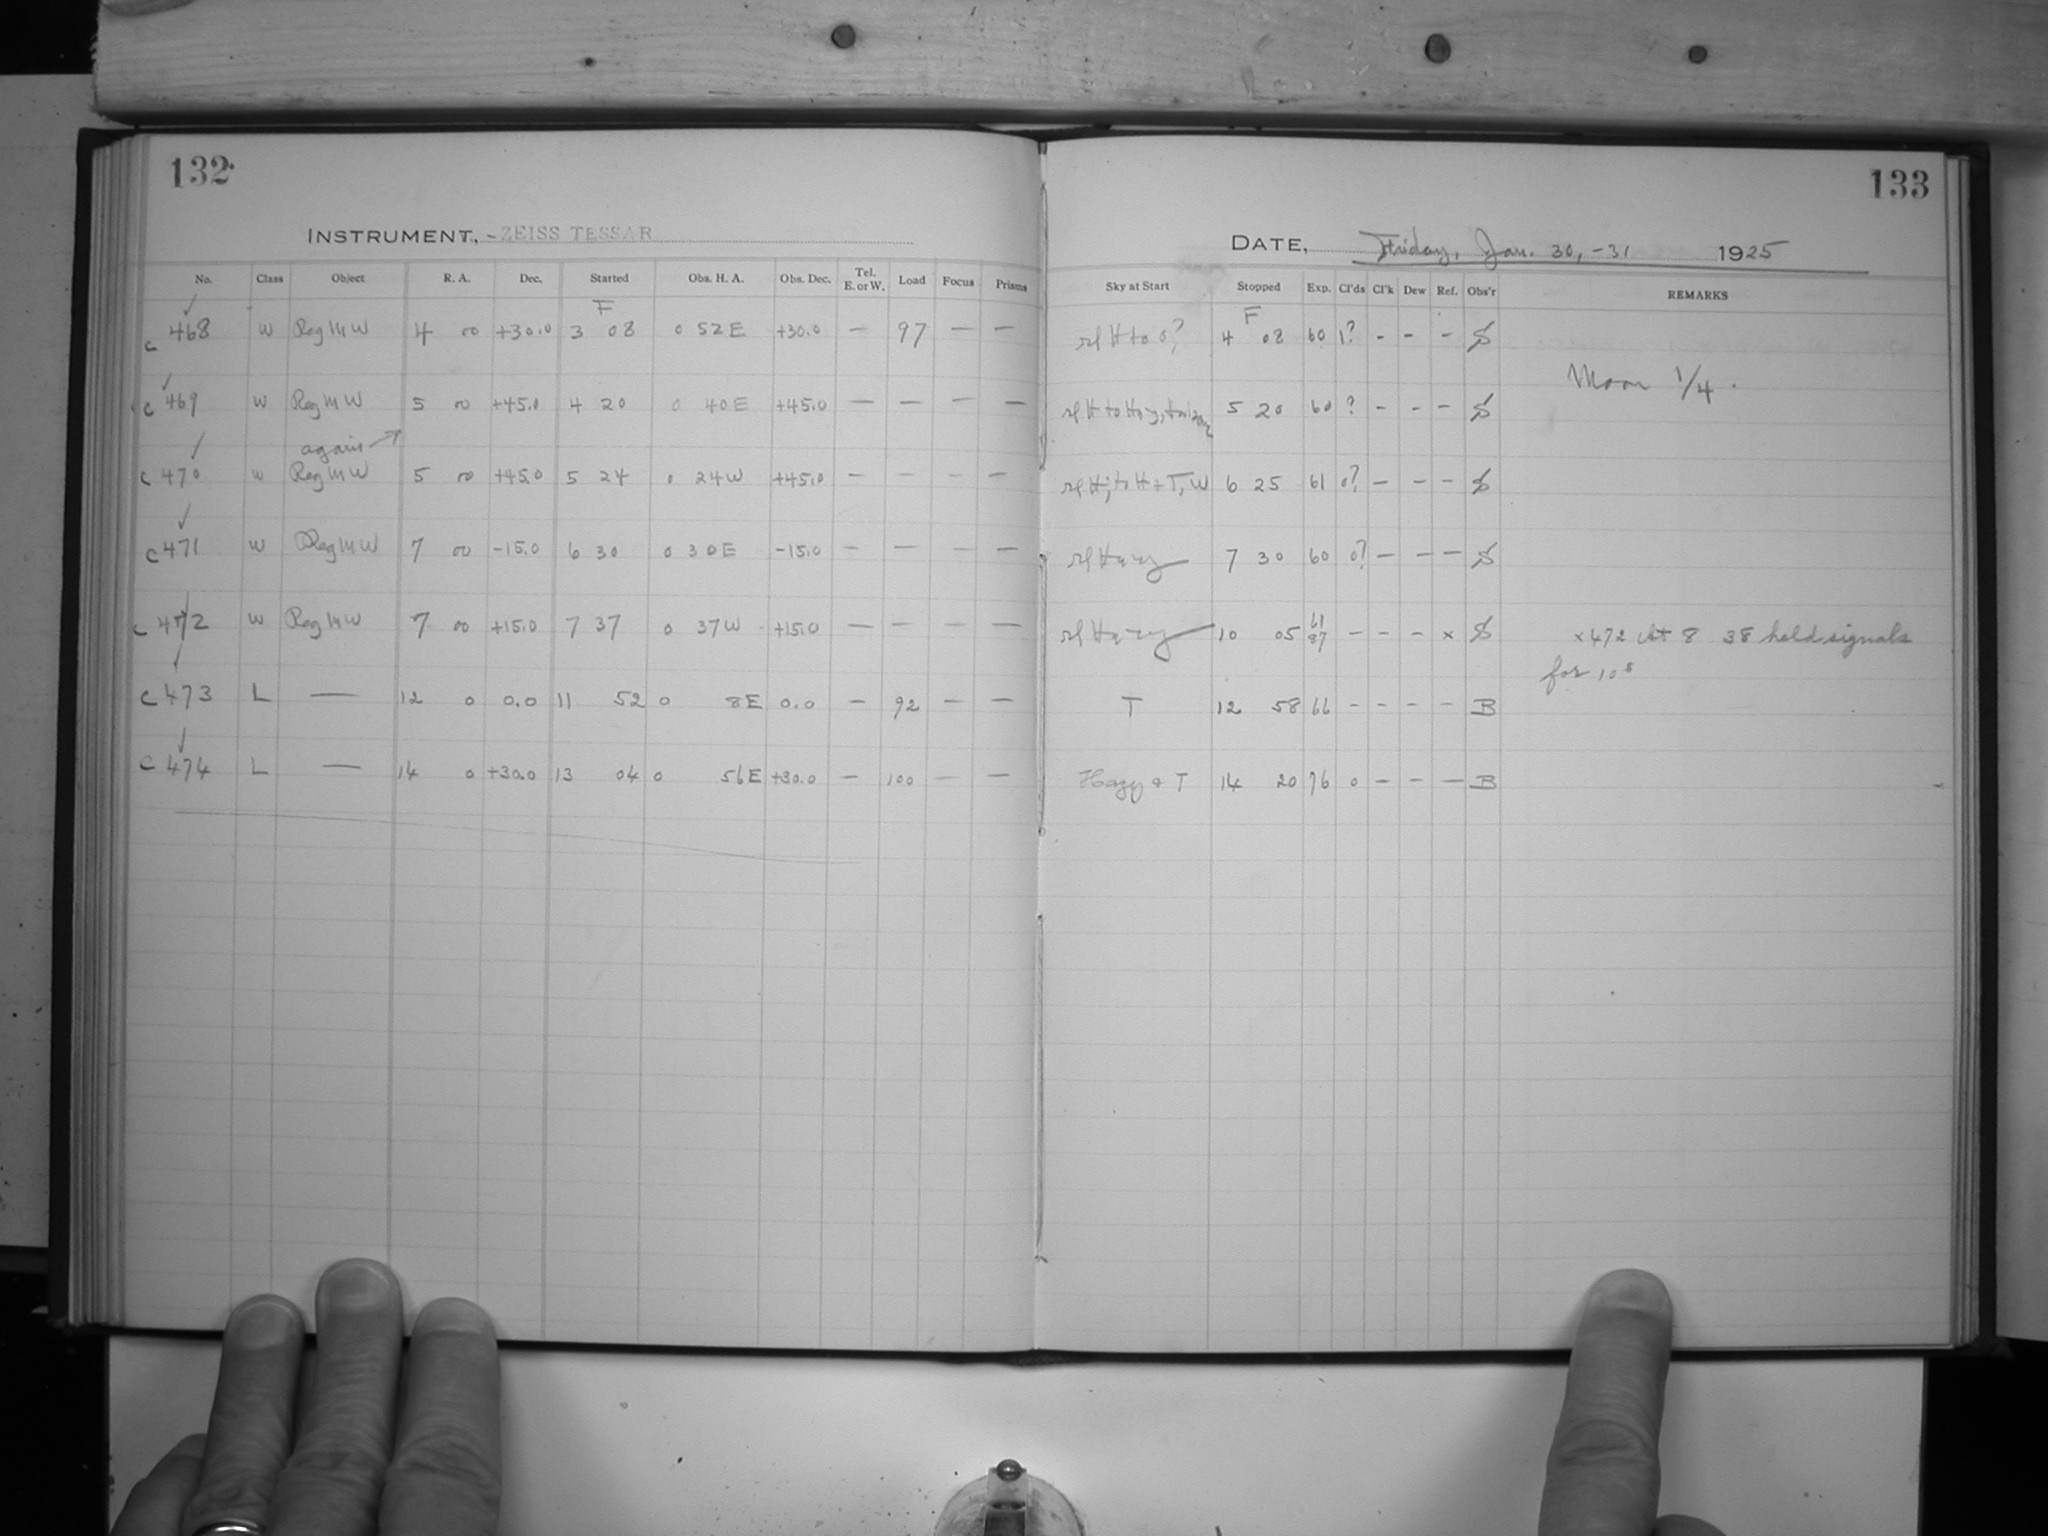 132
133
INSTRUMENT, - ZEISS TESSAR
DATE, Friday, Jan. 30, -31 1925
No. Class Object R. A. Dec. Started Obs. H. A. Obs. Dec. Tel. E. or W. Load Focus Prisms Sky at Start Stopped Exp. Cl'ds Cl'k Dew Ref. Obs'r REMARKS
F F
c 468 W Reg MW 4 00 +30.0 3 08 0 52 E +30.0 — 97 — — H to 0? 4 08 60 1? - - - S
Moon 1/4.
c 469 W Reg MW 5 00 +45.0 4 20 0 40 E +45.0 — — — — H to 5 20 60 ? - - - S
again
c 470 W Reg MW 5 00 +45.0 5 24 0 24 W +45.0 — — — — H + T, W 6 25 61 0? — - - S
c 471 W Reg MW 7 00 -15.0 6 30 0 30 E -15.0 — — — — Hazy 7 30 60 0? — — — S
c 472 W Reg MW 7 00 +15.0 7 37 0 37 W +15.0 — — — — Hazy 10 05 61 87 - - - x S x 472 At 8 38 held signals
for 10s
c 473 L — 12 0 0.0 11 52 0 8 E 0.0 — 92 — — T 12 58 66 - - - - B
c 474 L — 14 0 +30.0 13 04 0 56 E +30.0 — 100 — — Hazy & T 14 20 76 0 - - — B